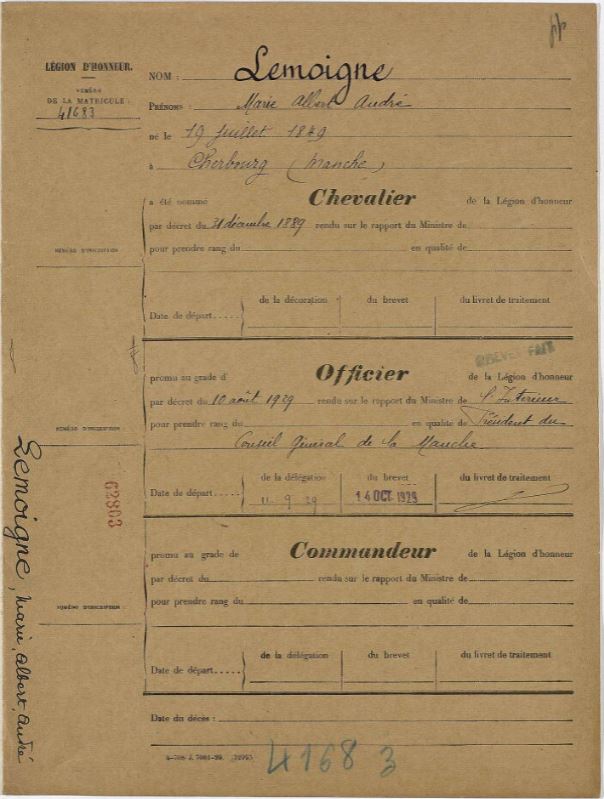 LÉGION D'HONNEUR.
NUMÉRO
DE LA MATRICULE :
41683
NOM : Lemoigne
PRÉNOMS : Marie Albert André
né le 19 Juillet 1849
à Cherbourg (Manche)
a été nommé Chevalier de la Légion d'honneur
par décret du 31 décembre 1889 rendu sur le rapport du Ministre de
NUMÉRO D'INSCRIPTION
pour prendre rang du en qualité de
de la décoration du brevet du livret de traitement
Date de départ.....
BREVET FAIT
promu au grade d' Officier de la Légion d'honneur
par décret du 10 août 1929 rendu sur le rapport du Ministre de l'Intérieur
NUMÉRO D'INSCRIPTION
pour prendre rang du en qualité de Président du
Conseil Général de la Manche
de la délégation du brevet du livret de traitement
Date de départ..... 11. 9. 29 14 OCT. 1929
62803
promu au grade de Commandeur de la Légion d'honneur
par décret du rendu sur le rapport du Ministre de
NUMÉRO D'INSCRIPTION :
pour prendre rang du en qualité de
de la délégation du brevet du livret de traitement
Date de départ.....
Date du décès :
41683
Lemoigne, Marie, Albert, André